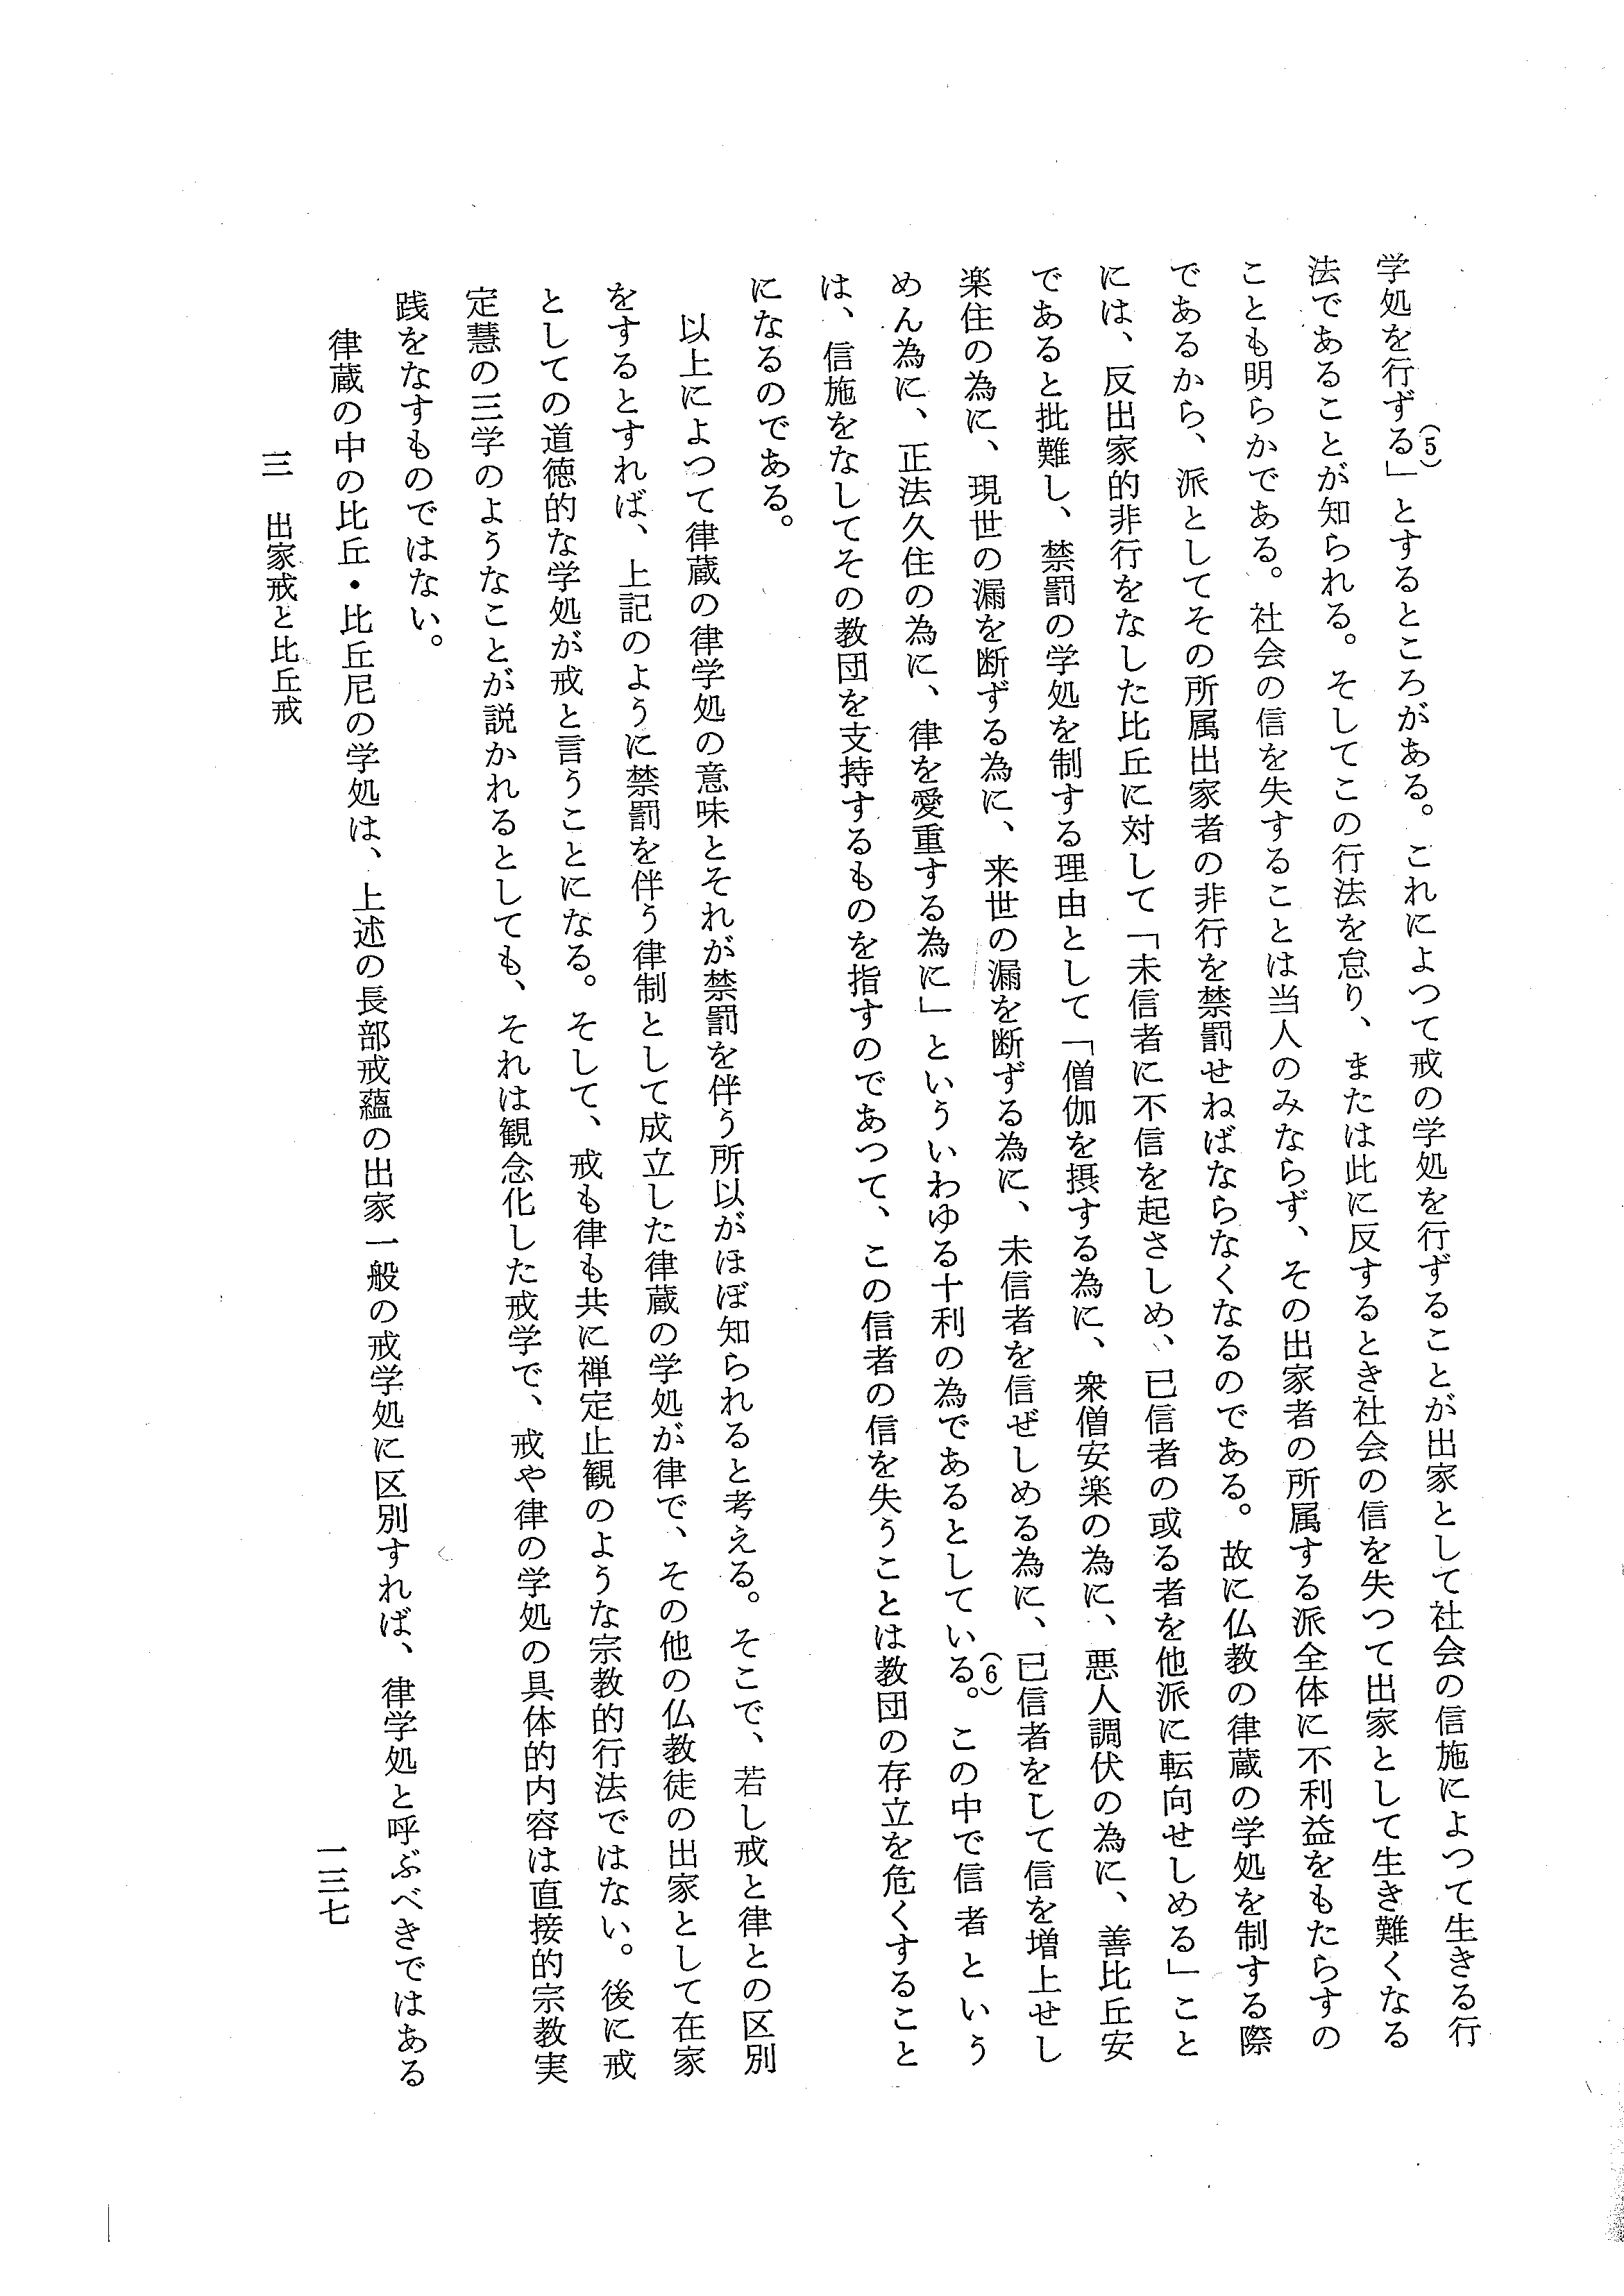 学処を行ずる」とするところがある。これによつて戒の学処を行ずることが出家として社会の信施によつて生きる行
(5)
法であることが知られる。そしてこの行法を怠り、または此に反するとき社会の信を失つて出家として生き難くなる
ことも明らかである。社会の信を失することは当人のみならず、その出家者の所属する派全体に不利益をもたらすの
であるから、派としてその所属出家者の非行を禁罰せねばならなくなるのである。故に仏教の律蔵の学処を制する際
には、反出家的非行をなした比丘に対して「未信者に不信を起さしめ、已信者の或る者を他派に転向せしめる」こと
であると批難し、禁罰の学処を制する理由として「僧伽を摂する為に、衆僧安楽の為に、悪人調伏の為に、善比丘安
楽住の為に、現世の漏を断ずる為に、来世の漏を断ずる為に、未信者を信ぜしめる為に、已信者をして信を増上せし
めん為に、正法久住の為に、律を愛重する為に」といういわゆる十利の為であるとしている。この中で信者という
(6)
は、信施をなしてその教団を支持するものを指すのであつて、この信者の信を失うことは教団の存立を危くすること
になるのである。
以上によつて律蔵の律学処の意味とそれが禁罰を伴う所以がほぼ知られると考える。そこで、若し戒と律との区別
をするとすれば、上記のように禁罰を伴う律制として成立した律蔵の学処が律で、その他の仏教徒の出家として在家
としての道徳的な学処が戒と言うことになる。そして、戒も律も共に禅定止観のような宗教的行法ではない。後に戒
定慧の三学のようなことが説かれるとしても、それは観念化した戒学で、戒や律の学処の具体的内容は直接的宗教実
践をなすものではない。
律蔵の中の比丘・比丘尼の学処は、上述の長部戒蘊の出家一般の戒学処に区別すれば、律学処と呼ぶべきではある
三 出家戒と比丘戒
一三七